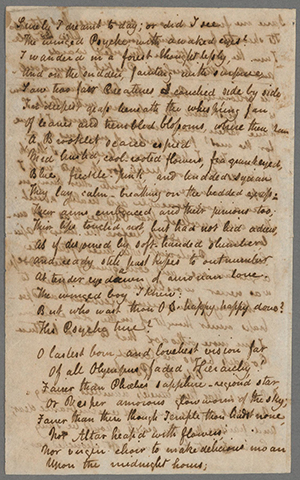 Surely I dreamt to day; or did I see
The winged Psyche with awaked eyes?
I wander'd in a forest thoughtlessly
And on the sudden, fainting with surprise
I saw two fair Creatures couched side by side
In deepest grass beneath the whisp'ring fan
Of leaves and trembled blossoms, where there ran
A Brooklet scarce espied
Mid hush'd, cool-rooted flowers, fragrant eyed,
Blue, freckle-pink and budded syrian
They lay, calm-breathing on the bedded grass;
Their arms embraced and their pinions too;
Their lips touch'd not, but had not bid adieu,
As if disjoined by soft-handed slumber
And ready still past kisses to outnumber
At tender eye dawn of aurorian love.
The winged boy I knew:
But who wast thou O happy happy dove?
His Psyche true?
O lastest born and loveliest vision far
Of all Olympus faded Hierarchy!
Fairer than Phœbes sapphire-region'd star
Or Vesper amorous glow worm of the sky;
Fairer than these though Temple thou hadst none,
Nor Altar heap'd with flowers;
Nor virgin choir to make delicious moan
Upon the midnight hours;